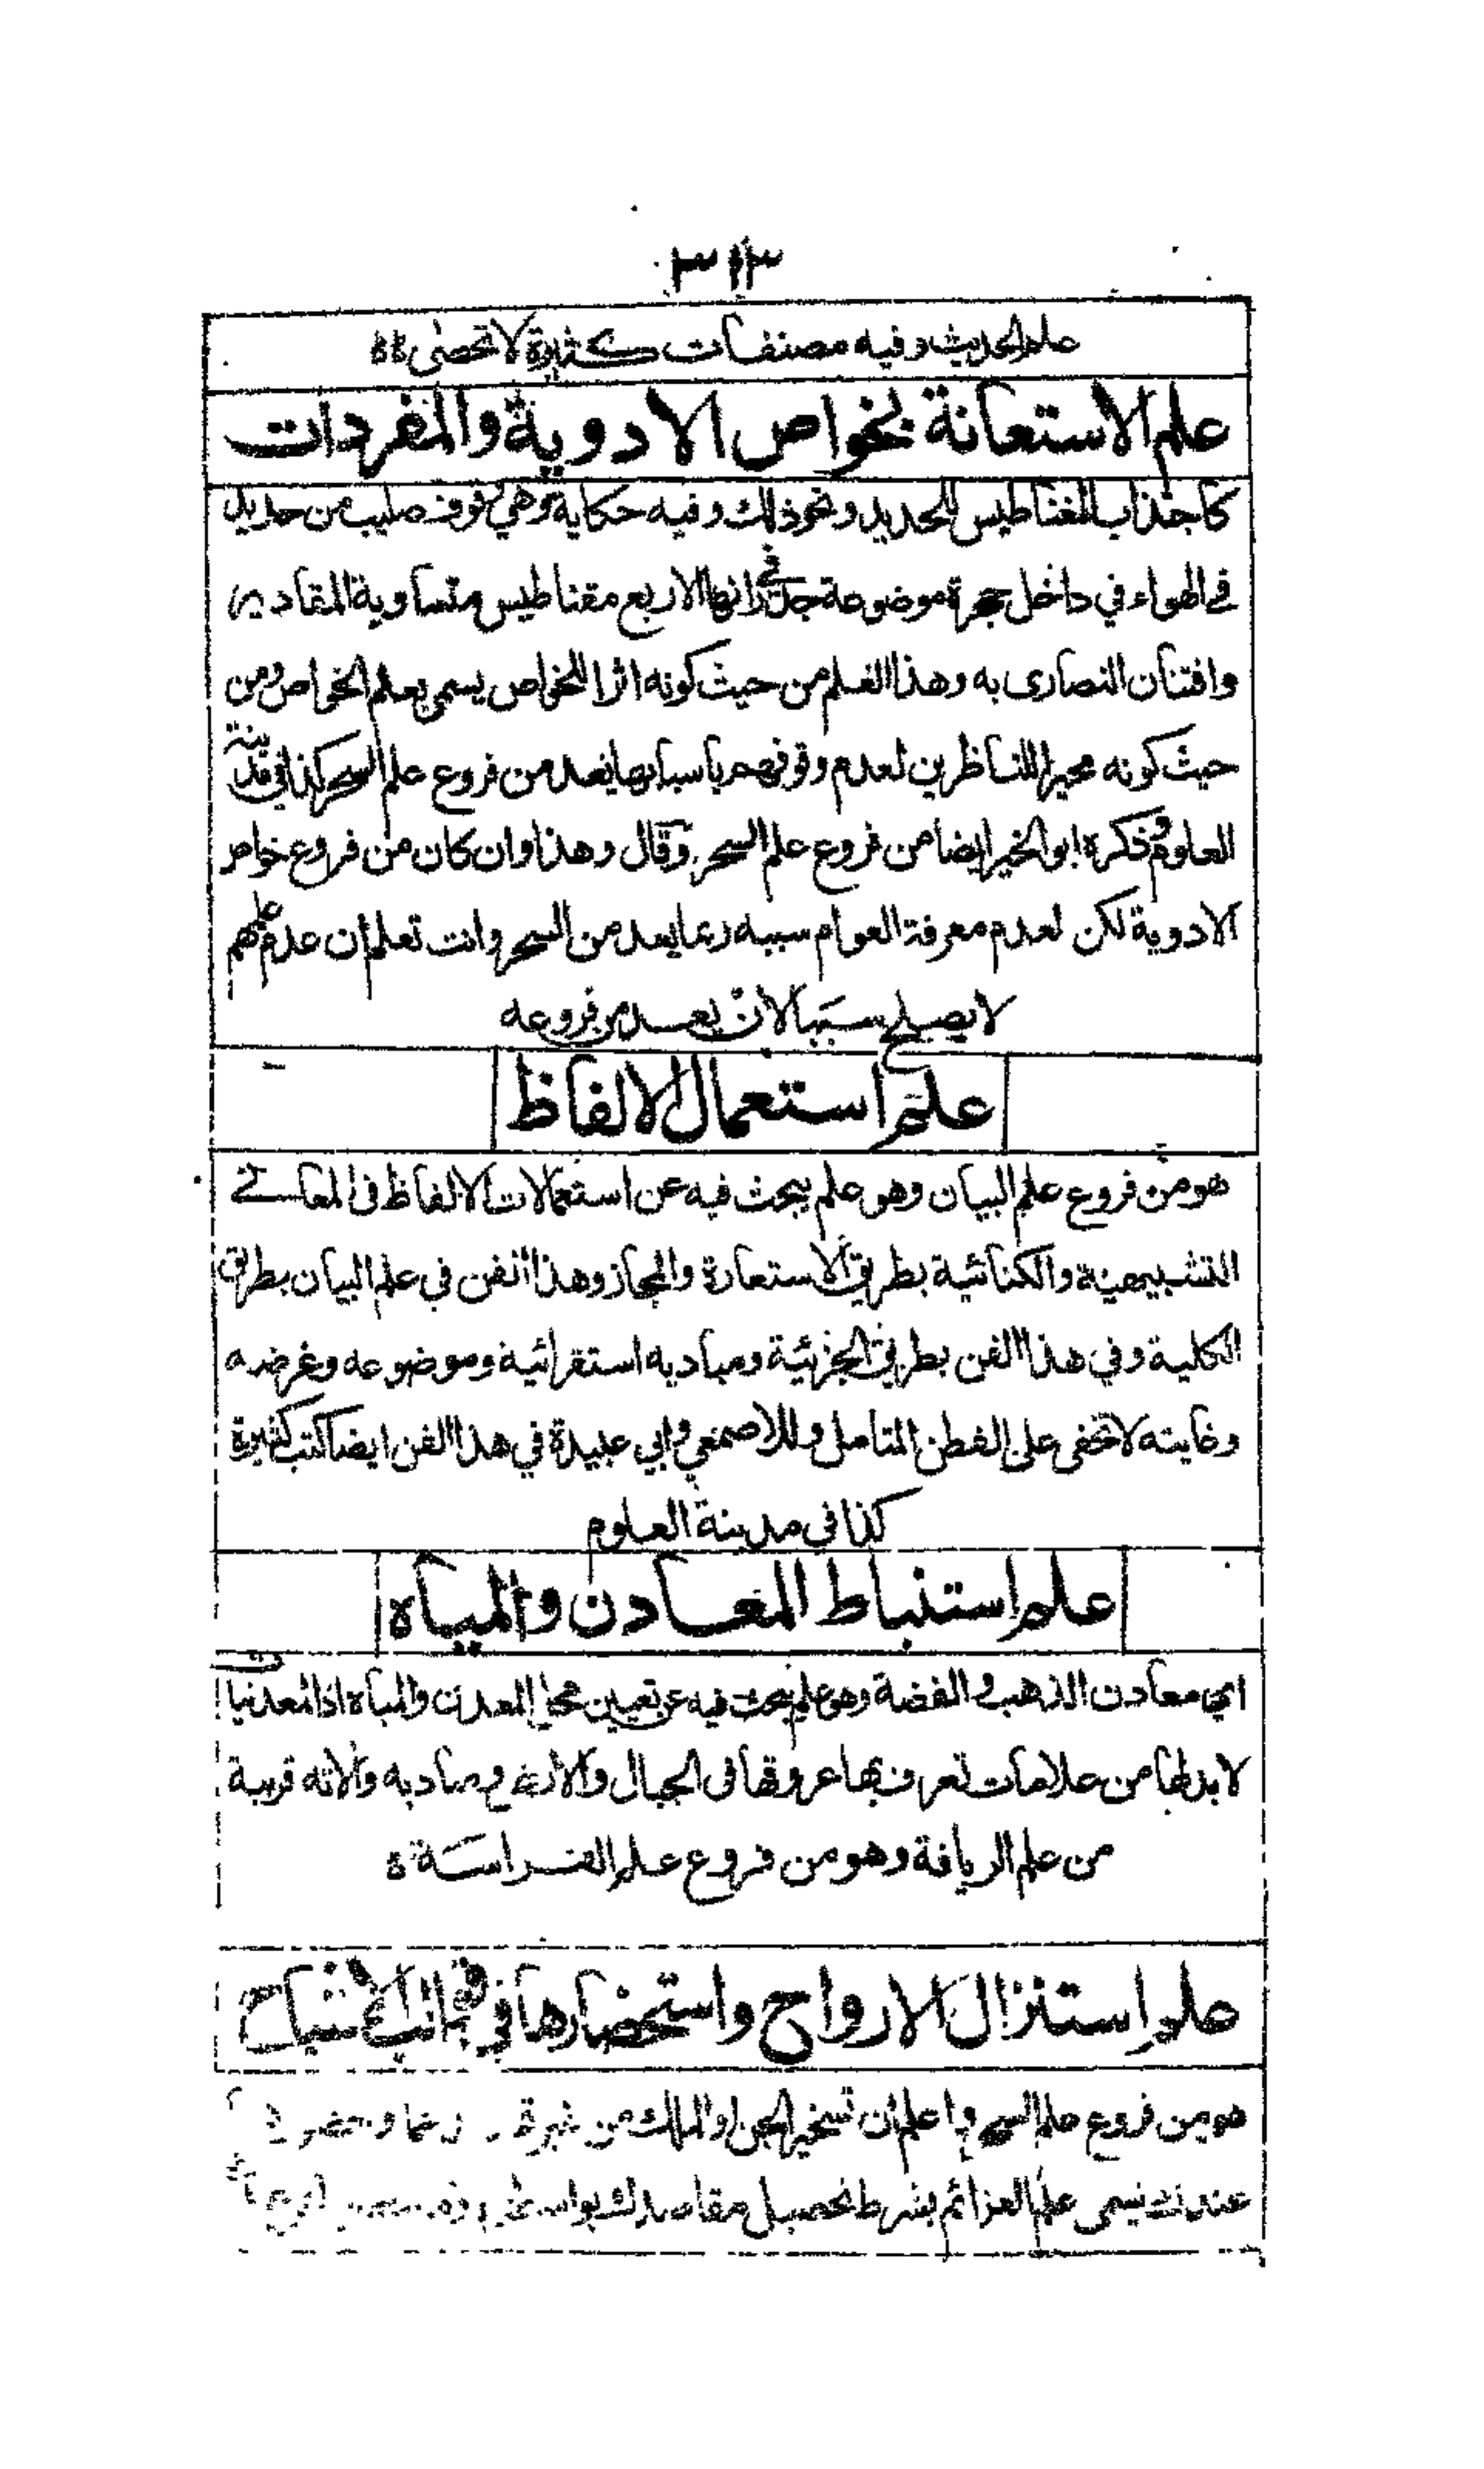 ٣١٣
علم الحديث وفيه مصنفات كثيرة لا تحصى
علم الاستعانة بخواص الادوية والمفردات
كاجذاب المغناطيس للحديد ونحو ذلك وفيه حكاية وهي وقوف صليب من حديد
في الهواء في داخل حجرة موضوعة في جدرانها الاربع مقناطيس متساوية المقادير
وافتنان النصارى به وهذا العلم من حيث كونه اثرا للخواص يسمى بعلم الخواص ومن
حيث كونه محيرا للناظرين لعدم وقوفهم باسبابها يعد من فروع علم السحر كذا في مدينة
العلوم وذكره ابو الخير ايضا من فروع علم السحر وقال وهذا وان كان من فروع خواص
الادوية لكن لعدم معرفة العوام سببه ربما يعد من السحر وانت تعلم ان عدم علمهم
لا يصلح سببا لان يعد من فروعه
علم استعمال الالفاظ
هو من فروع علم البيان وهو علم يبحث فيه عن استعمالات الالفاظ في المعاني
التشبيهية والكنائية بطريق الاستعارة والمجاز وهذا الفن في علم البيان بطريق
الكلية وفي هذا الفن بطريق الجزئية ومباديه استقرائية وموضوعه وغرضه
وغايته لا تخفى على الفطن المتامل وللاصمعي وابي عبيدة في هذا الفن ايضا كتب كثيرة
كذا في مدينة العلوم
علم استنباط المعادن والمياه
اي معادن الذهب والفضة وهو علم يبحث فيه عن تعيين محل المعدن والمياه اذ المعدنيات
لا بد لها من علامات تعرف بها عروقها في الجبال والارض ومباديه والاته قريبة
من علم الريافة وهو من فروع علم الفراسة
علم استنزال الارواح واستحضارها في قوالب الاشباح
هو من فروع علم السحر واعلم ان تسخير الجن او الملك من غير
عندك يسمى علم العزائم بشرط تحصيل مقاصدك بواسطتهم